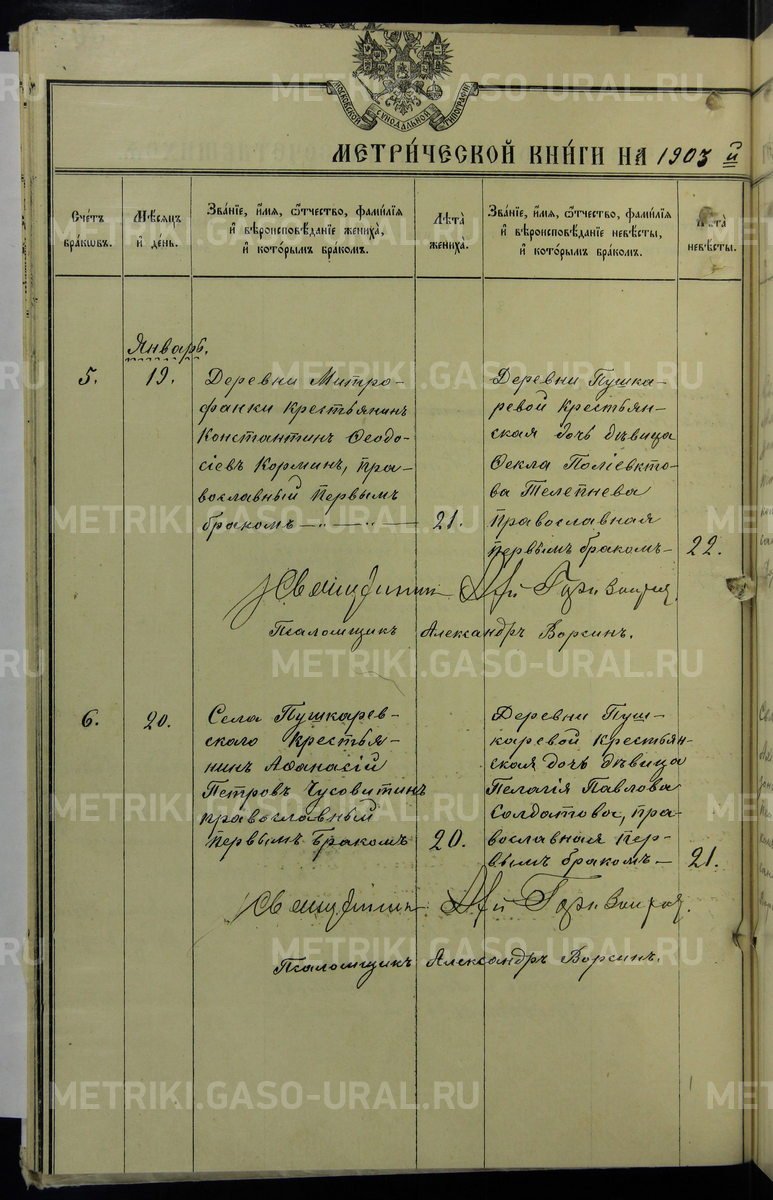 МОСКОВСКОЙ СѴНОДАЛЬНОЙ ТИПОГРАФІИ
МЕТРИ́ЧЕСКОЙ КНИ́ГИ НА 1903 й
Счетъ бра́кѡвъ.
Мѣсяцъ и де́нь.
Зва́нїе, и́мя, ѻ́тчество, фами́лїя и҆ вѣроисповѣ́данїе жениха̀, и҆ кото́рымъ бра́комъ.
Лѣ́та жениха̀.
Зва́нїе, и́мя, ѻ́тчество, фами́лїя и҆ вѣроисповѣ́данїе невѣ́сты, и҆ кото́рымъ бра́комъ.
Лѣ́та невѣ́сты.
Январь.
5.
19.
Деревни Митро-
фанки крестьянинъ
Константинъ Ѳеодо-
сіевъ Корминъ, пра-
вославный первымъ
бракомъ — „ — „ —
21.
Деревни Пушка-
ревой крестьян-
ская дочь дѣвица
Ѳекла Поліевкто-
ва Телепнева
православная
первымъ бракомъ—
22.
Священникъ
Псаломщикъ Александръ Ворсинъ.
6.
20.
Села Пушкарев-
скаго крестья-
нинъ Аѳанасій
Петровъ Чусовитинъ
православный
первымъ бракомъ
20.
Деревни Пуш-
каревой крестьян-
ская дочь дѣвица
Пелагія Павлова
Солдатова, пра-
вославная пер-
вымъ бракомъ—
21.
Священникъ
Псаломщикъ Александръ Ворсинъ.
METRIKI.GASO-URAL.RU